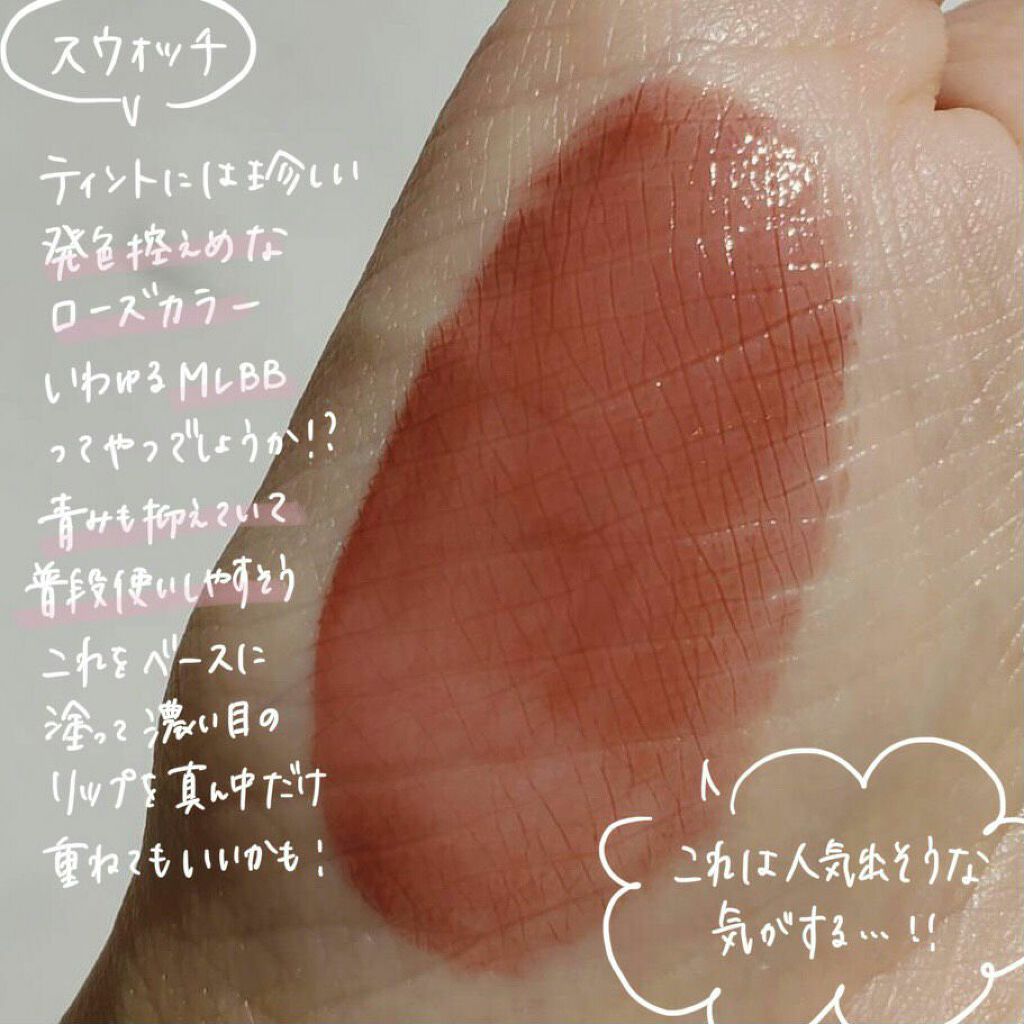 スウォッチ
ティントには珍しい
発色控えめな
ローズカラー
いわゆるMLBB
ってやつでしょうか!?
青みも抑えていて
普段使いしやすそう
これをベースに
塗って濃い目の
リップを真ん中だけ
重ねてもいいかも!
これは人気出そうな
気がする…!!